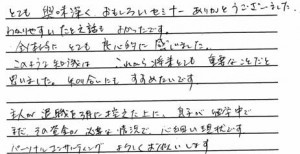 とても 興味深く おもしろいセミナー ありがとうございました。
わかりやすいたとえ話も よかったです。
全体的に とても 良心的に 感じました。
このような知識は これから将来とても 重要なことだと
思いました。知合いにも すすめたいです
主人が 退職を3月に控えた上に、息子が 留学中で
まだ その資金が 必要な情況で、心細い現状です
パーソナルコンサルティング よろしくおねがいします